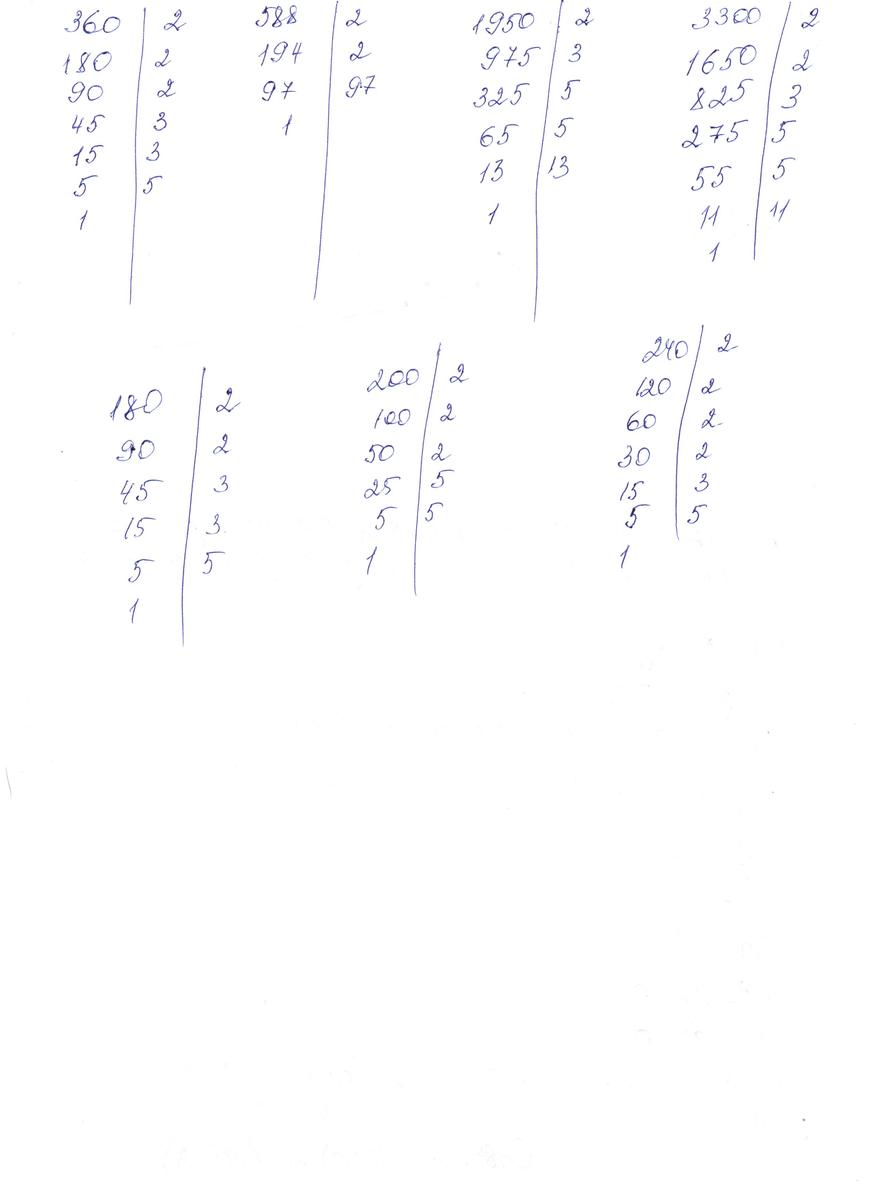 360 2
180 2
90 2
45 3
15 3
5 5
1
588 2
194 2
97 97
1
1950 2
975 3
325 5
65 5
13 13
1
3300 2
1650 2
825 3
275 5
55 5
11 11
1
180 2
90 2
45 3
15 3
5 5
1
200 2
100 2
50 2
25 5
5 5
1
240 2
120 2
60 2
30 2
15 3
5 5
1